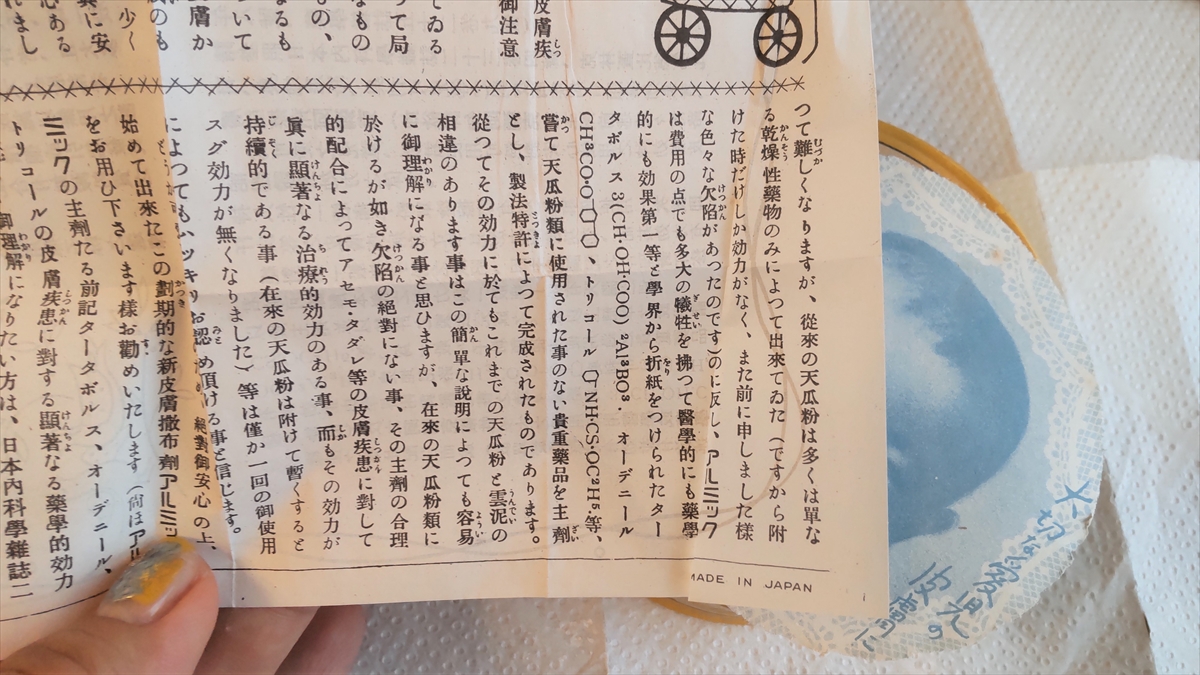 皮膚疾
御注意
てゐる
って局
なもの
もの、
なるも
ついて
皮膚か
つて難しくなりますが、從來の天瓜粉は多くは單な
る乾燥性藥物のみによつて出來てゐた（ですから附
けた時だけしか効力がなく、また前に申しました樣
な色々な欠陷があつたのです）のに反し、アルミック
は費用の点でも多大の犠牲を拂つて醫學的にも藥學
的にも効果第一等と學界から折紙をつけられたター
タボルス3(CH・OH・COO)²Al³BO³．オーデニール
CH³CO・O、トリコール NH・CS・OC²H⁵.等、
嘗て天瓜粉類に使用された事のない貴重藥品を主劑
とし、製法特許によつて完成されたものであります。
從つてその効力に於てもこれまでの天瓜粉と雲泥の
相違のあります事はこの簡單な説明によつても容易
に御理解になる事と思ひますが、在來の天瓜粉類に
於けるが如き欠陷の絕對にない事、その主劑の合理
的配合によってアセモ・タダレ等の皮膚疾患に對して
眞に顯著なる治療的効力のある事、而もその効力が
持續的である事（在來の天瓜粉は附けて暫くすると
スグ効力が無くなりました）等は僅か一回の御使用
によつてもハッキリお認め頂ける事と信じます。
絕對御安心の上、
始めて出來たこの劃期的な新皮膚撒布劑アルミッ
をお用ひ下さいます樣お勸めいたします（尚ほアル
ミックの主劑たる前記タータボルス、オーデニール、
トリコールの皮膚疾患に對する顯著なる藥學的効力
御理解になりたい方は、日本內科學雜誌二
MADE IN JAPAN
大切な愛児の
皮膚に